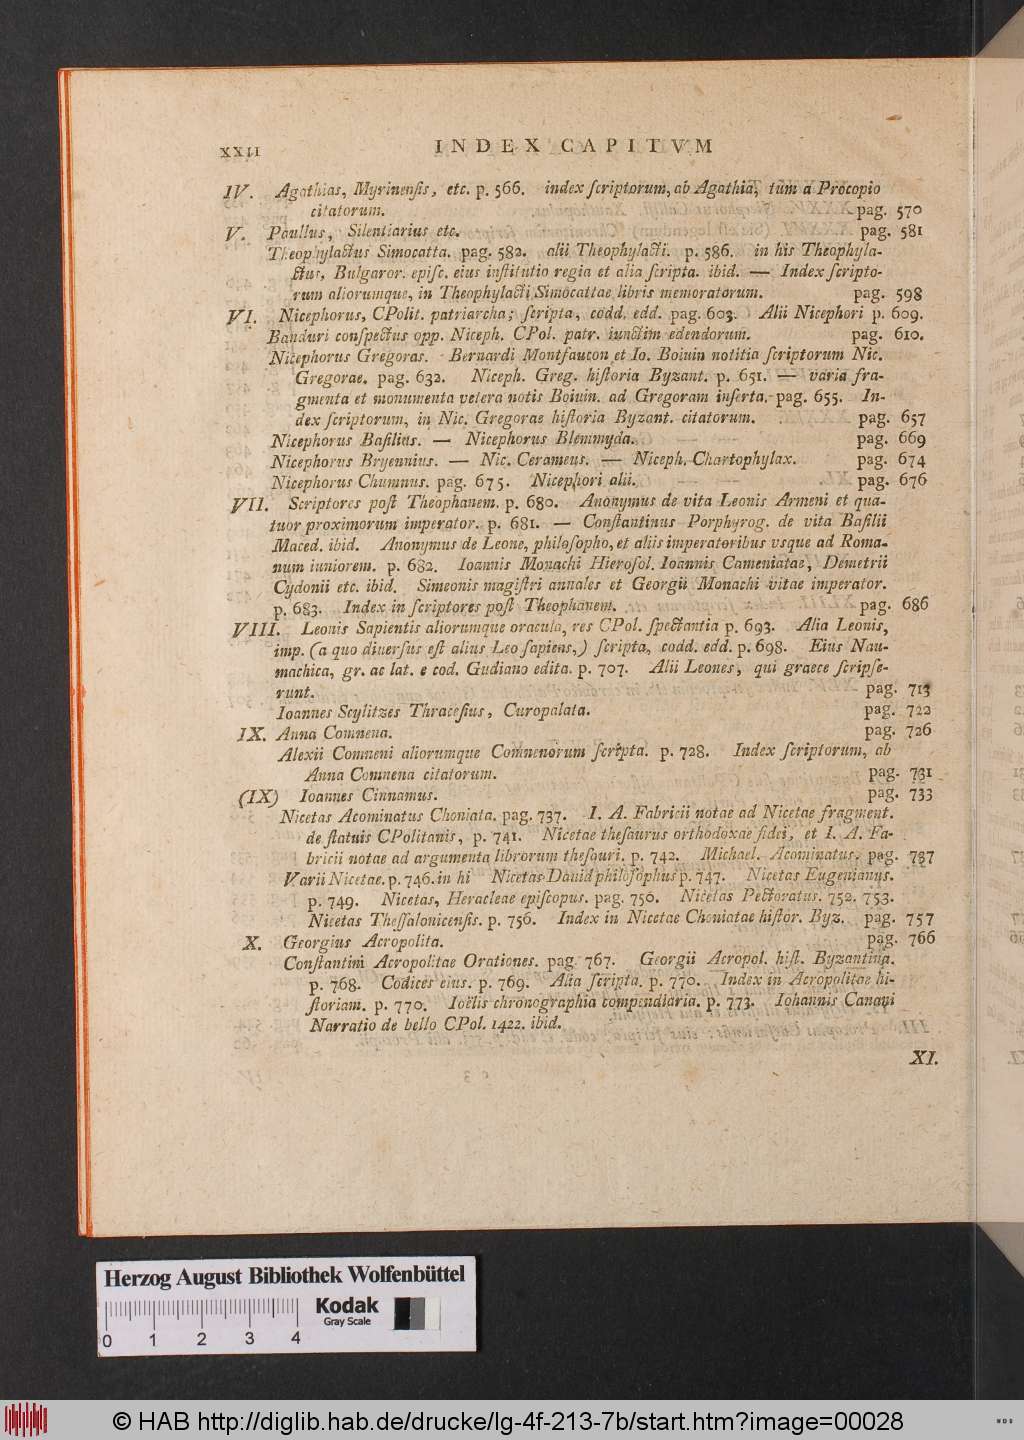 XXII INDEX CAPITVM
IV. Agathias, Myrinenſis, etc. p. 566. index ſcriptorum, ab Agathia, tum a Procopio
citatorum. pag. 570
V. Paullus, Silentiarius etc. pag. 581
Theophylactus Simocatta. pag. 582. alii Theophylacti. p. 586. in his Theophyla-
ctus, Bulgaror. epiſc. eius inſtitutio regia et alia ſcripta. ibid. — Index ſcripto-
rum aliorumque, in Theophylacti Simocattae libris memoratorum. pag. 598
VI. Nicephorus, CPolit. patriarcha; ſcripta, codd. edd. pag. 603. Alii Nicephori p. 609.
Banduri conſpectus opp. Niceph. CPol. patr. iunctim edendorum. pag. 610.
Nicephorus Gregoras. Bernardi Montfaucon et Io. Boiuin notitia ſcriptorum Nic.
Gregorae. pag. 632. Niceph. Greg. hiſtoria Byzant. p. 651. — varia fra-
gmenta et monumenta vetera notis Boiuin. ad Gregoram inſerta. pag. 655. In-
dex ſcriptorum, in Nic. Gregorae hiſtoria Byzant. citatorum. pag. 657
Nicephorus Baſilius. — Nicephorus Blemmyda. pag. 669
Nicephorus Bryennius. — Nic. Cerameus. — Niceph. Chartophylax. pag. 674
Nicephorus Chumnus. pag. 675. Nicephori alii. pag. 676
VII. Scriptores poſt Theophanem. p. 680. Anonymus de vita Leonis Armeni et qua-
tuor proximorum imperator. p. 681. — Conſtantinus Porphyrog. de vita Baſilii
Maced. ibid. Anonymus de Leone, philoſopho, et aliis imperatoribus vsque ad Roma-
num iuniorem. p. 682. Ioannis Monachi Hieroſol. Ioannis Cameniatae, Demetrii
Cydonii etc. ibid. Simeonis magiſtri annales et Georgii Monachi vitae imperator.
p. 683. Index in ſcriptores poſt Theophanem. pag. 686
VIII. Leonis Sapientis aliorumque oracula, res CPol. ſpectantia p. 693. Alia Leonis,
imp. (a quo diuerſus eſt alius Leo ſapiens,) ſcripta, codd. edd. p. 698. Eius Nau-
machica, gr. ac lat. e cod. Gudiano edita. p. 707. Alii Leones, qui graece ſcripſe-
runt. pag. 713
Ioannes Scylitzes Thraceſius, Curopalata. pag. 722
IX. Anna Comnena. pag. 726
Alexii Comneni aliorumque Comnenorum ſcripta. p. 728. Index ſcriptorum, ab
Anna Comnena citatorum. pag. 731
(IX) Ioannes Cinnamus. pag. 733
Nicetas Acominatus Choniata. pag. 737. I. A. Fabricii notae ad Nicetae fragment.
de ſtatuis CPolitanis, p. 741. Nicetae theſaurus orthodoxae fidei, et I. A. Fa-
bricii notae ad argumenta librorum theſauri. p. 742. Michael. Acominatus. pag. 737
Varii Nicetae. p. 746. in hi Nicetas Dauid philoſophus p. 747. Nicetas Eugenianus.
p. 749. Nicetas, Heracleae epiſcopus. pag. 750. Nicetas Pectoratus. 752. 753.
Nicetas Theſſalonicenſis. p. 756. Index in Nicetae Choniatae hiſtor. Byz. pag. 757
X. Georgius Acropolita. pag. 766
Conſtantini Acropolitae Orationes. pag. 767. Georgii Acropol. hiſt. Byzantina.
p. 768. Codices eius. p. 769. Alia ſcripta. p. 770. Index in Acropolitae hi-
ſtoriam. p. 770. Ioëlis chronographia compendiaria. p. 773. Iohannis Canani
Narratio de bello CPol. 1422. ibid.
XI.
Herzog August Bibliothek Wolfenbüttel
0 1 2 3 4
Kodak
Gray Scale
© HAB http://diglib.hab.de/drucke/lg-4f-213-7b/start.htm?image=00028